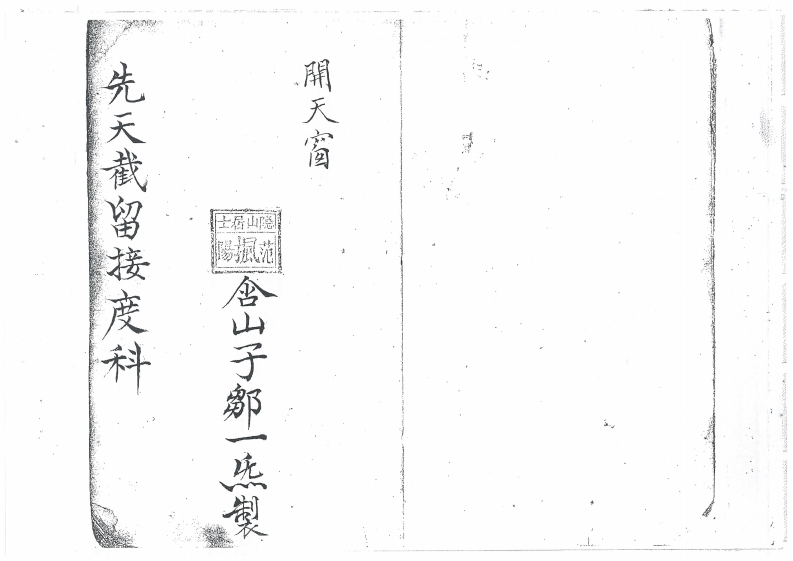 開天窗
隐山居士
范 陽
含山子鄒一炁製
先天截留接度科